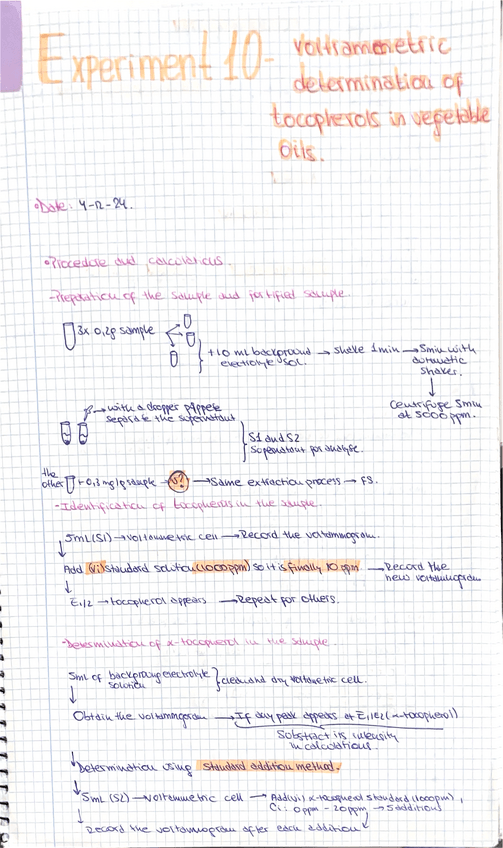 Experiment 10- voltrammetric
determination of
tocopherols in vegetable
oils.
• Date: 4-12-24.
• Procedure and calculations.
- Preparation of the sample and fortified sample.
3x 0,2g sample
+10 mL background electrolyte sol. → shake 1 min → 5min with automatic shaker.
Centrifuge 5min at 5000 rpm.
→ with a dropper pippete separate the supernatant
S1 and S2 supernatant for analyte.
the other + 0,3 mg/g sample → v? → Same extraction process → FS.
- Identification of tocopherols in the sample.
5mL (S1) → voltammetric cell → Record the voltammogram.
Add (Vi) standard solution (1000ppm) so it is finally 10 ppm. → Record the new voltammogram
E1/2 → tocopherol appears → Repeat for others.
- Determination of α-tocopherol in the sample.
5mL of background electrolyte solution } clean and dry voltammetric cell.
Obtain the voltammogram → If any peak appears at E1/2 (α-tocopherol)
Substract its intensity in calculations.
Determination using standard addition method.
5mL (S2) → voltammetric cell → Add (Vi) α-tocopherol standard (1000ppm),
Ci: 0ppm - 20ppm → 5 additions
→ Record the voltammogram after each addition